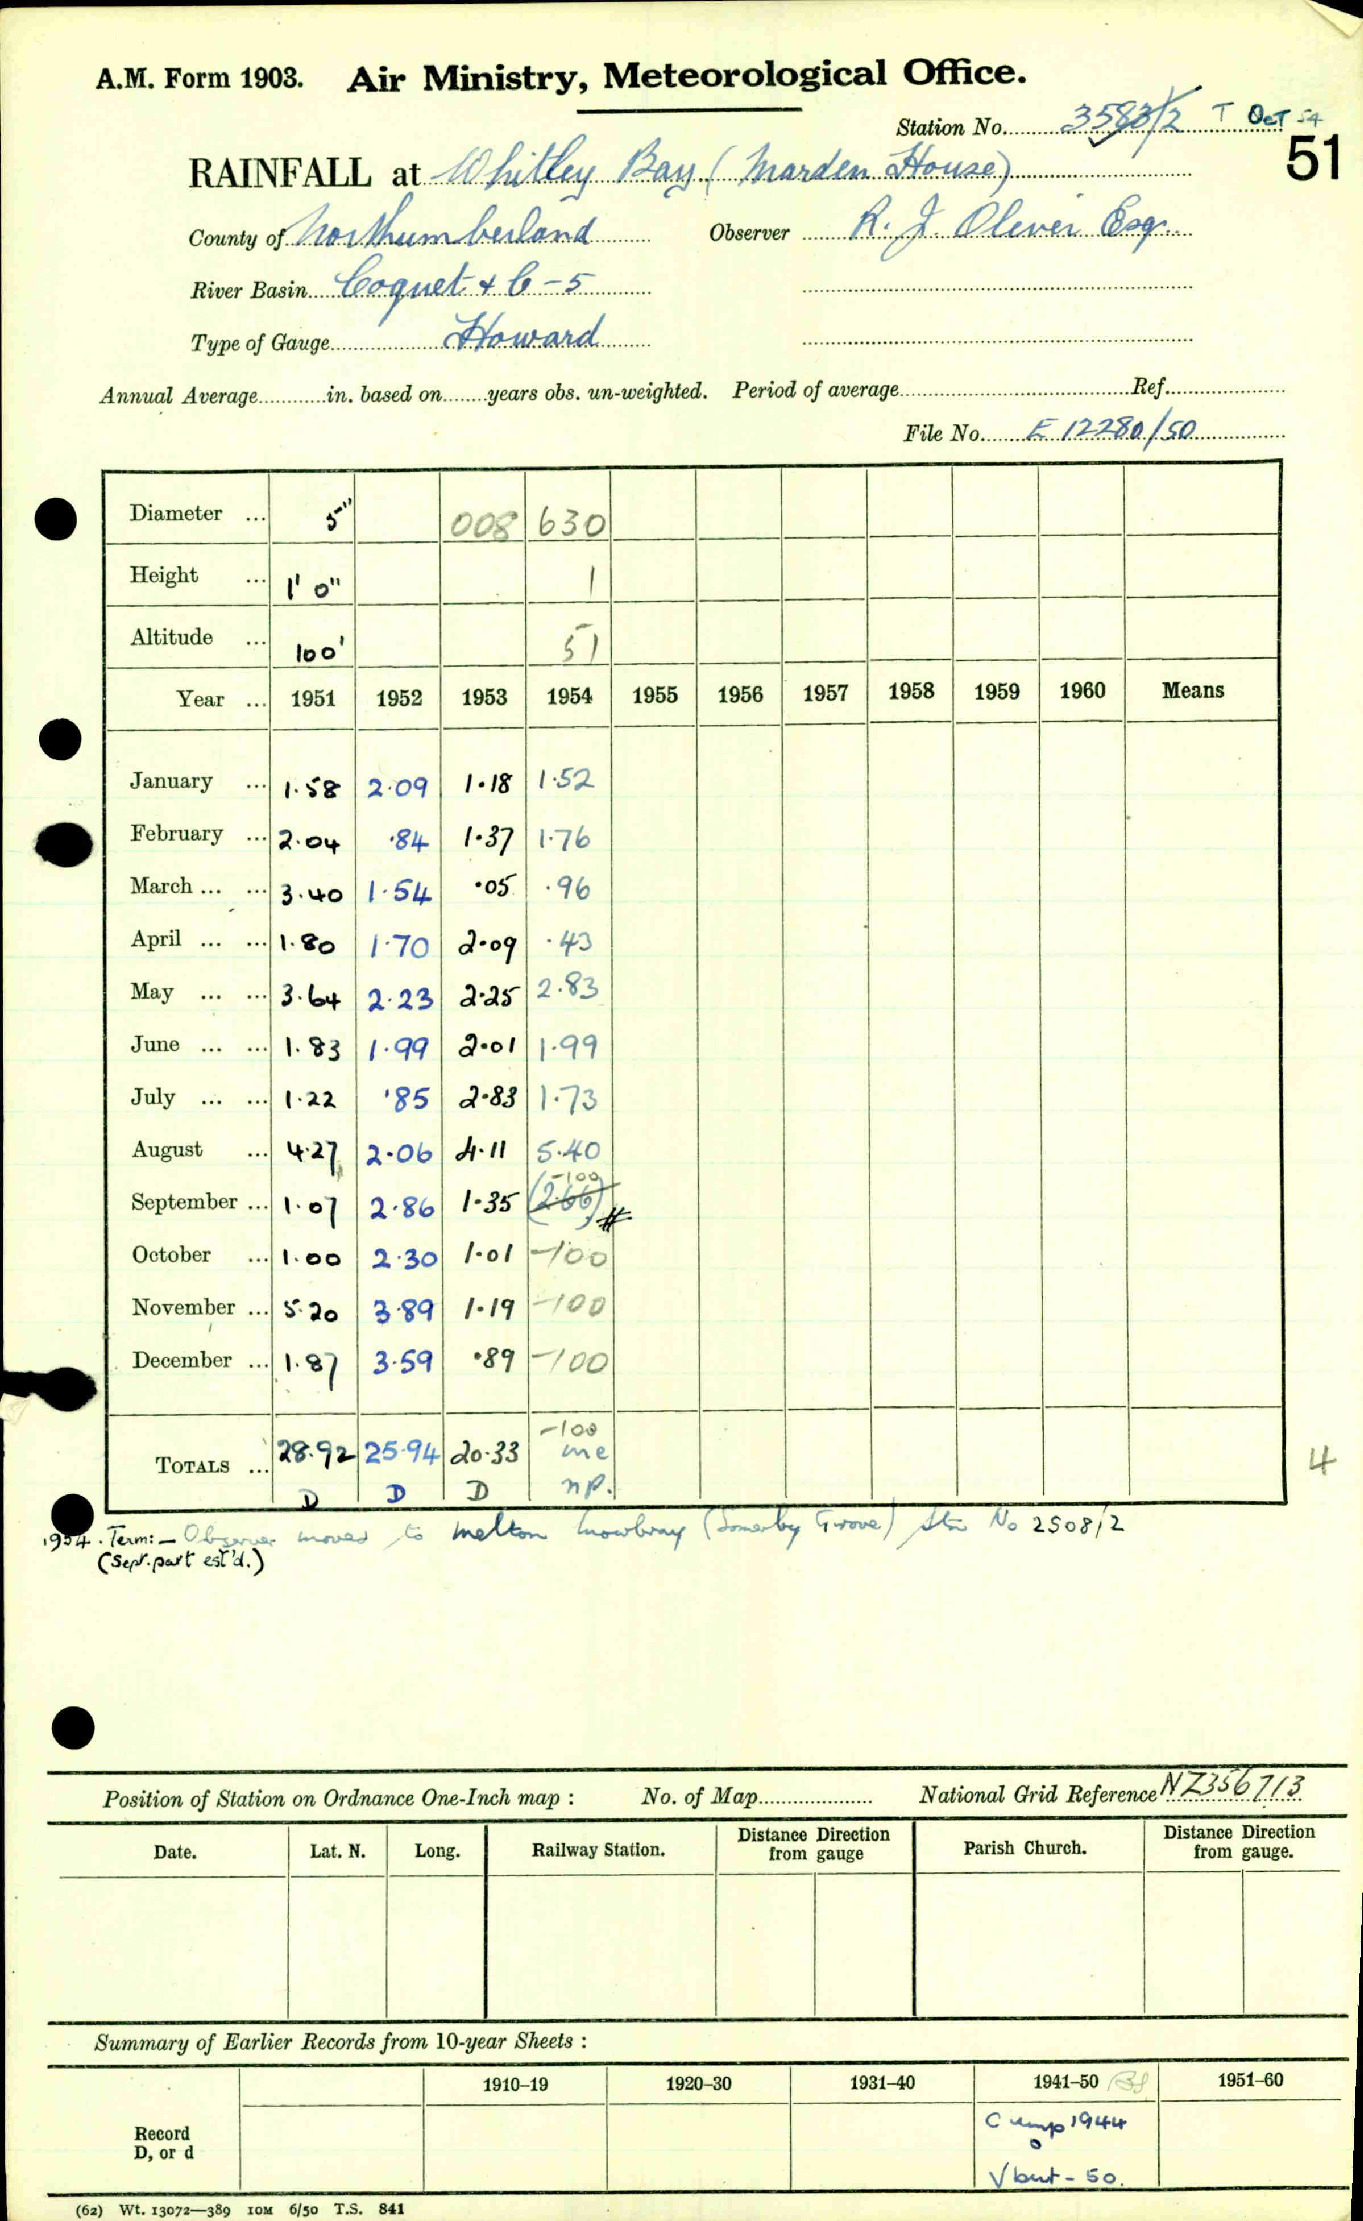 A.M. Form 1903. Air Ministry, Meteorological Office.
Station No. 3583/2 T Oct 54
51
RAINFALL at Whitley Bay (Marden House)
County of Northumberland Observer R. J. Olever Esq.
River Basin Coquet + C-5
Type of Gauge Howard
Annual Average in. based on years obs. un-weighted. Period of average Ref.
File No. E 12280/50
Diameter ... 5" 008 630
Height ... 1' 0" 1
Altitude ... 100' 51
Year ... 1951 1952 1953 1954 1955 1956 1957 1958 1959 1960 Means
January ... 1.58 2.09 1.18 1.52
February ... 2.04 .84 1.37 1.76
March ... ... 3.40 1.54 .05 .96
April ... ... 1.80 1.70 2.09 .43
May ... ... 3.64 2.23 2.25 2.83
June ... ... 1.83 1.99 2.01 1.99
July ... ... 1.22 .85 2.83 1.73
August ... 4.27 2.06 4.11 5.40
-100
September ... 1.07 2.86 1.35 (2.66) #
October ... 1.00 2.30 1.01 -100
November ... 5.20 3.89 1.19 -100
December ... 1.87 3.59 .89 -100
-100
TOTALS ... 28.92 25.94 20.33 ine 4
D D D np.
1954. Term:- Observer moved to Melton Mowbray (Somerby Grove) Stn No 2508/2
(Sept. part est'd.)
Position of Station on Ordnance One-Inch map : No. of Map National Grid Reference NZ356713
Date. Lat. N. Long. Railway Station. Distance Direction from gauge Parish Church. Distance Direction from gauge.
Summary of Earlier Records from 10-year Sheets :
1910-19 1920-30 1931-40 1941-50 1951-60
Record
D, or d
1944
- 50.
(62) Wt. 13072—389 10M 6/50 T.S. 841